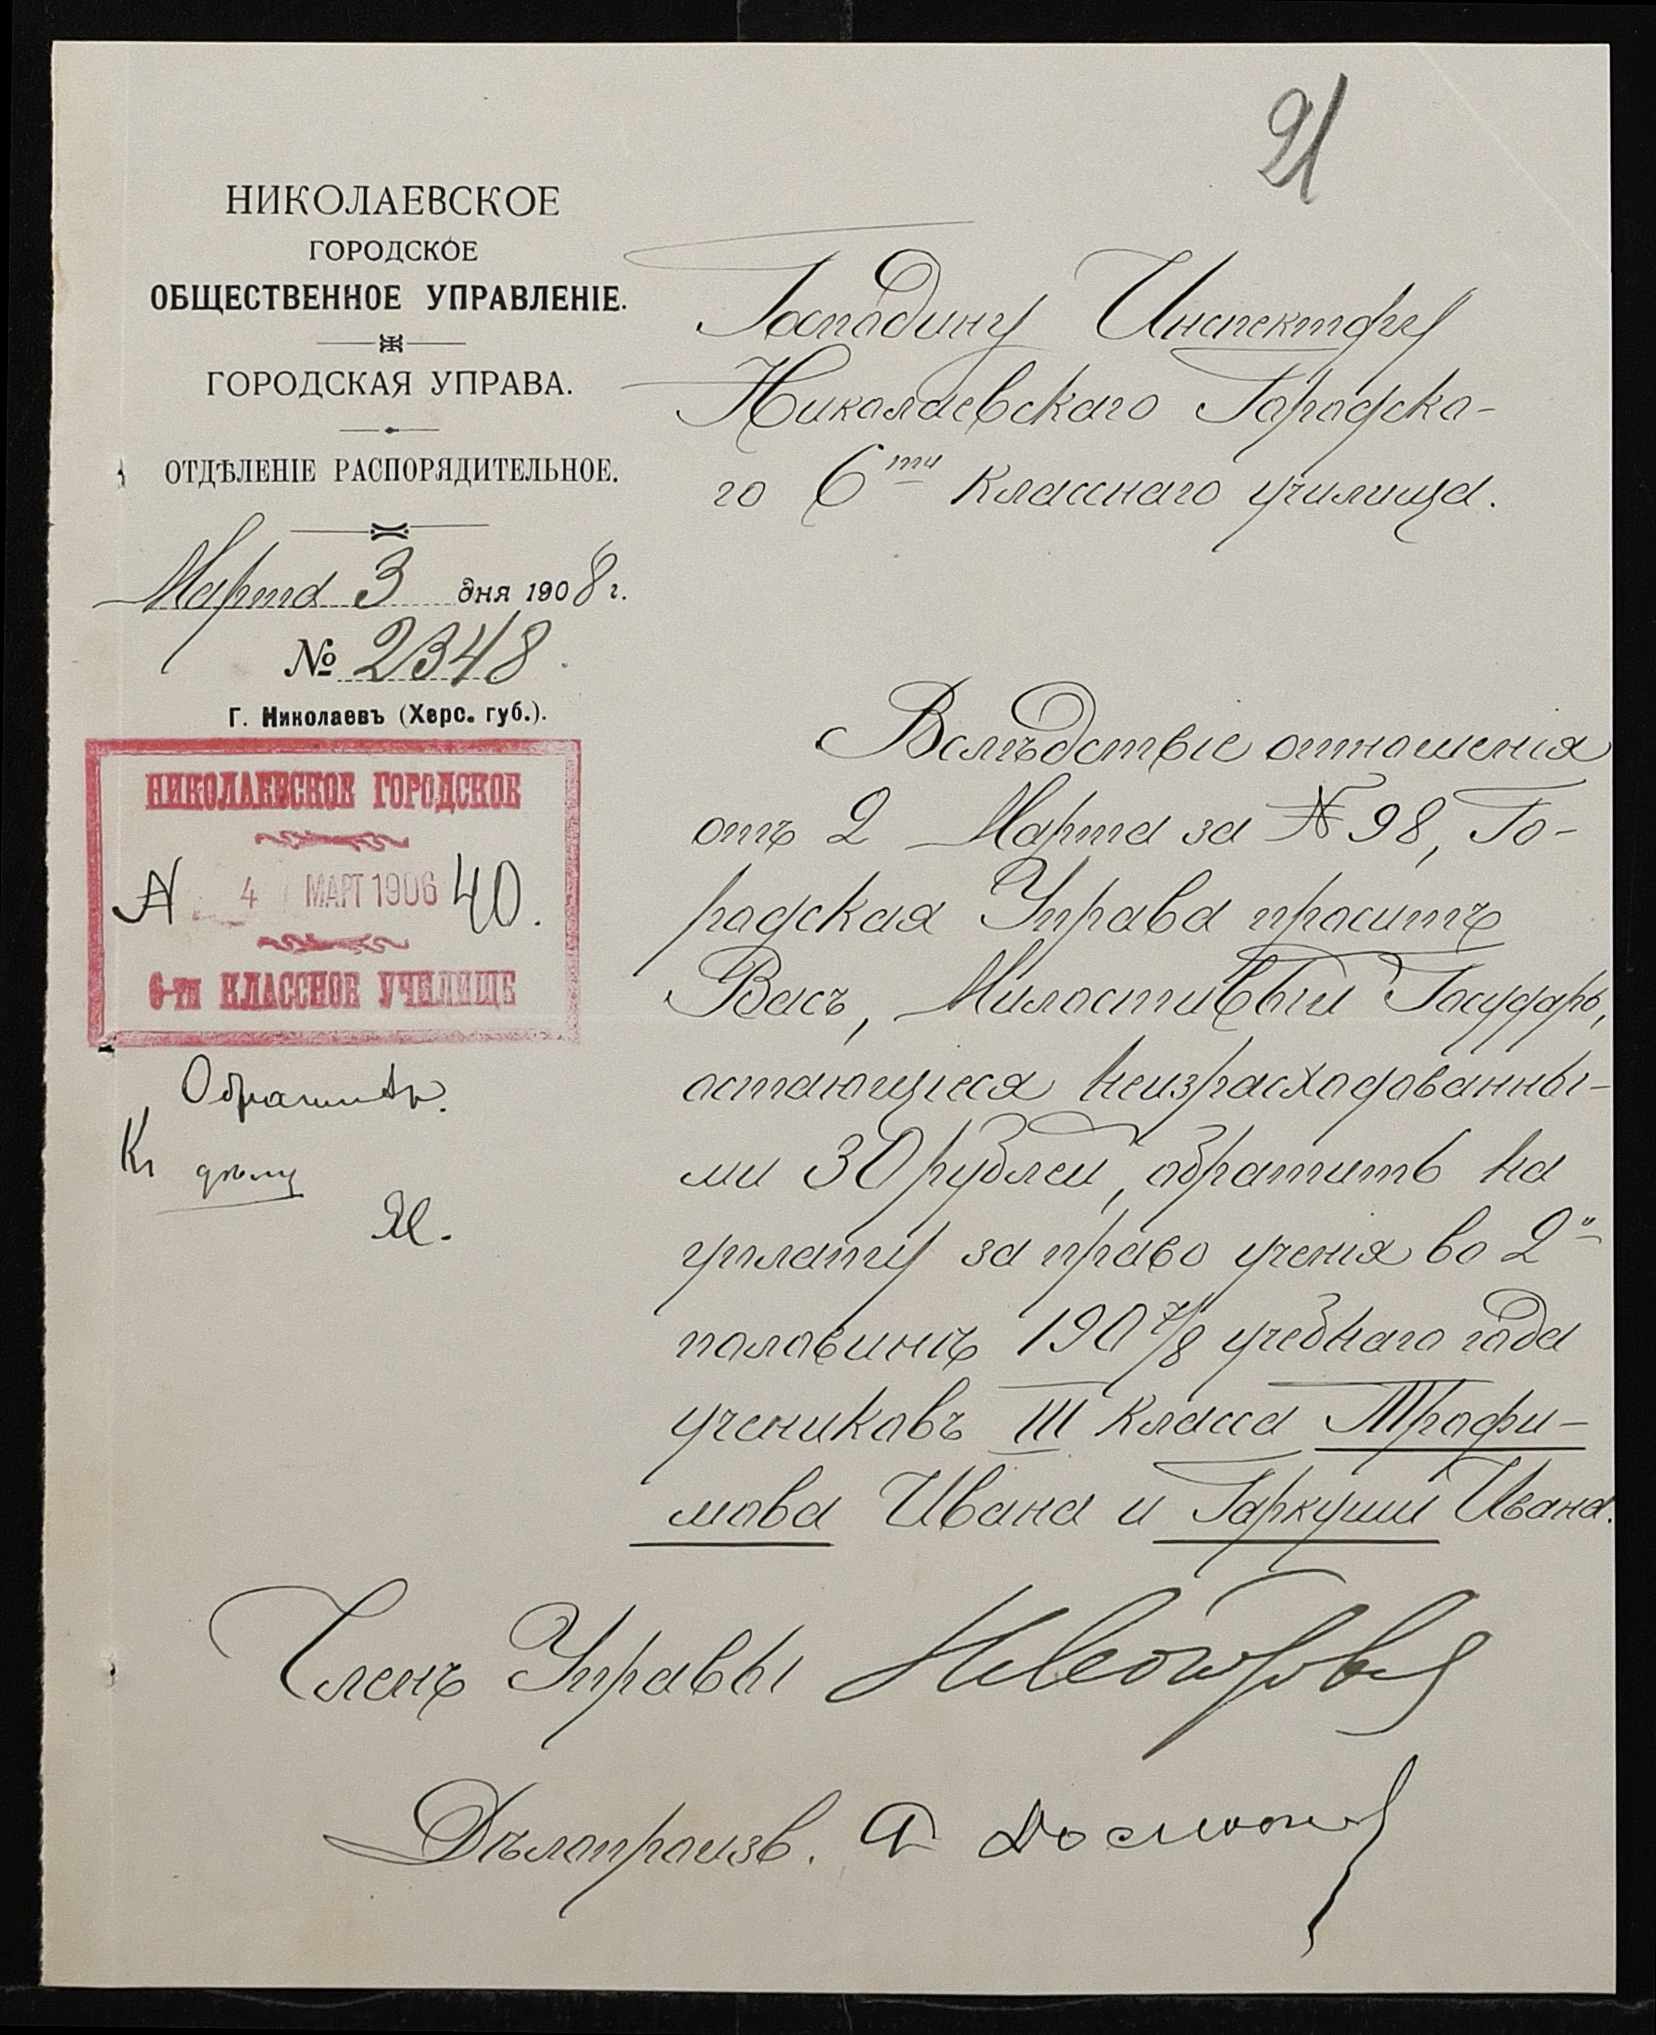 21
НИКОЛАЕВСКОЕ
ГОРОДСКОЕ
ОБЩЕСТВЕННОЕ УПРАВЛЕНІЕ.
ГОРОДСКАЯ УПРАВА.
ОТДѢЛЕНІЕ РАСПОРЯДИТЕЛЬНОЕ.
Марта 3 дня 1908 г.
№ 2348.
Г. Николаевъ (Херс. губ.).
НИКОЛАЕВСКОЕ ГОРОДСКОЕ
№ 4 МАРТ 1906 40.
6-ти КЛАССНОЕ УЧИЛИЩЕ
Къ дѣлу
Господину Инспектору
Николаевскаго Городско-
го 6ти класснаго училища.
Вслѣдствіе отношенія
отъ 2 Марта за № 98, Го-
родская Управа проситъ
Васъ, Милостивый Государь,
остающіеся неизрасходованны-
ми 30 рублей, обратить на
уплату за право ученія во 2й
половинѣ 1907/8 учебнаго года
учениковъ III класса Трофи-
мова Ивана и Гаркуши Ивана.
Членъ Управы
Дѣлопроизв.